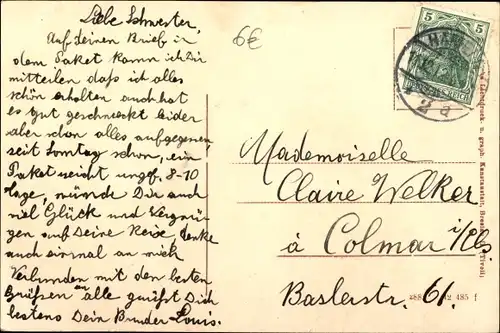 Liebe Schwester,
Auf deinen Brief in
dem Paket kann ich Dir
mitteilen daß ich alles
schön erhalten auch hat
es gut geschmeckt leider
aber schon alles aufgegessen
seit Sontag schon, ein
Paket reicht ungef. 8-10
Tage, wünsche Dir auch
viel Glück und Vergnü-
gen auf Deine Reise denke
auch einmal an mich
Verbunden mit den besten
Grüßen an alle grüßt Dich
bestens Dein Bruder Louis.
6€
5 5
2a
Mademoiselle
Claire Welker
à Colmar i/Els.
Baslerstr. 61.
Lichtdruck u. graph. Kunstanstalt,
485 f